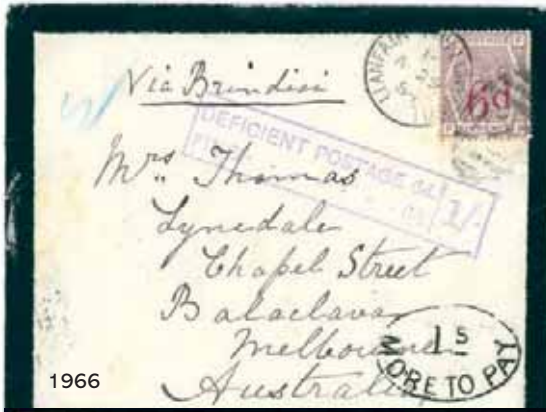 Via Brindisi
6d
DEFICIENT POSTAGE 6d.
FINE 1/-
Mrs. Thomas
Lynedale
Chapel Street
Balaclava
Melbourne
Australia
1s
MORE TO PAY
1966